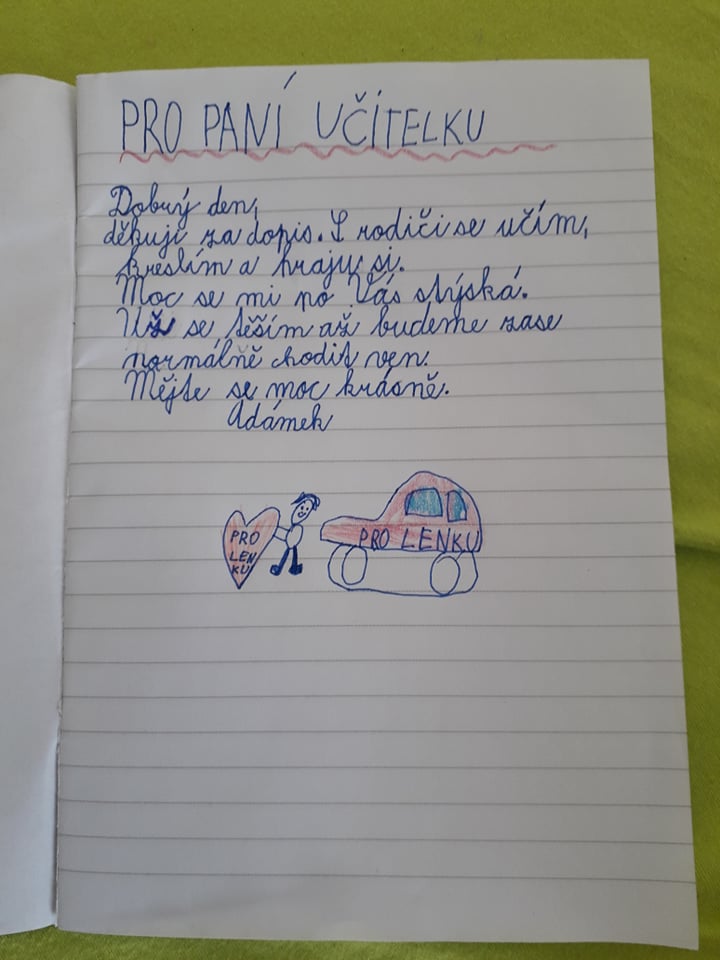 PRO PANÍ UČITELKU
Dobrý den,
děkuji za dopis. S rodiči se učím,
kreslím a hraju si.
Moc se mi po Vás stýská.
Už se těším až budeme zase
normálně chodit ven.
Mějte se moc krásně.
Adámek
PRO
LEN
KU
PRO LENKU